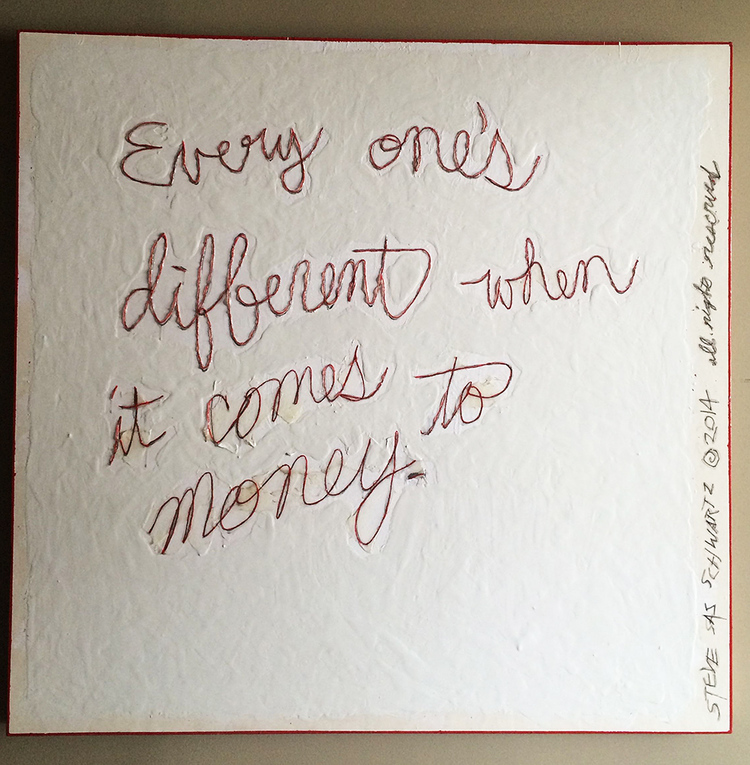 Every one's
different when
it comes to
money.
STEVE SAS SCHWARTZ ©2014 all rights reserved